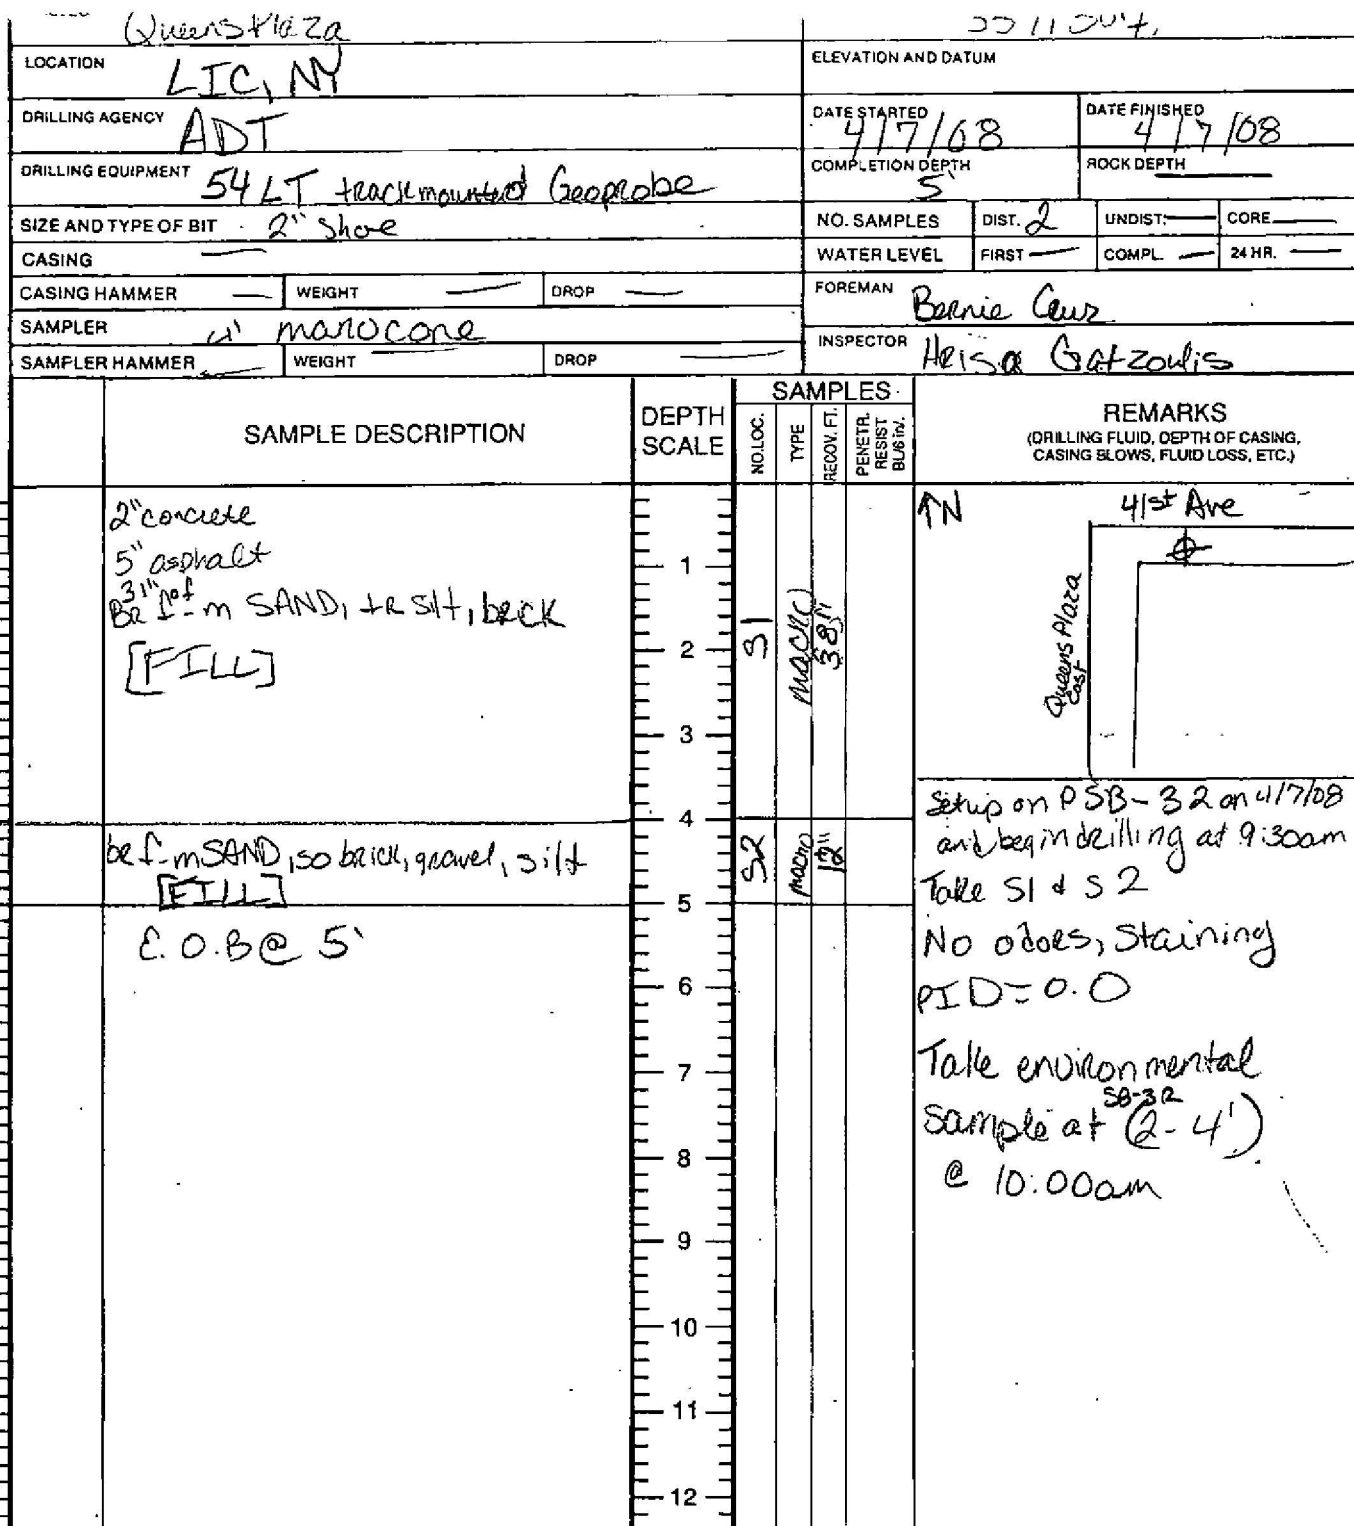 Queens Plaza
LOCATION LIC, NY
ELEVATION AND DATUM
DRILLING AGENCY ADT
DATE STARTED 4/7/08
DATE FINISHED 4/7/08
DRILLING EQUIPMENT 54 LT track mounted Geoprobe
COMPLETION DEPTH 5'
ROCK DEPTH —
SIZE AND TYPE OF BIT 2" Shoe
NO. SAMPLES DIST. 2 UNDIST. — CORE —
CASING —
WATER LEVEL FIRST — COMPL. — 24 HR. —
CASING HAMMER — WEIGHT — DROP —
FOREMAN Bernie Cruz
SAMPLER 4' macrocore
INSPECTOR Heisa Gatzoulis
SAMPLER HAMMER — WEIGHT — DROP —
SAMPLE DESCRIPTION
DEPTH SCALE
SAMPLES
NO.LOC.
TYPE
RECOV. FT.
PENETR. RESIST BL/6 in.
REMARKS
(DRILLING FLUID, DEPTH OF CASING,
CASING BLOWS, FLUID LOSS, ETC.)
2" concrete
5" asphalt
31" of
Br f-m SAND, tr silt, brick
[FILL]
S1 macro 38"
br f-m SAND, so brick, gravel, silt
[FILL]
S2 macro 12"
E.O.B @ 5'
1
2
3
4
5
6
7
8
9
10
11
12
↑N
41st Ave
Queens Plaza
East
Setup on PSB-32 on 4/7/08
and begin drilling at 9:30am
Take S1 & S2
No odors, Staining
PID = 0.0
Take environmental
SB-32
sample at (2-4')
@ 10:00am